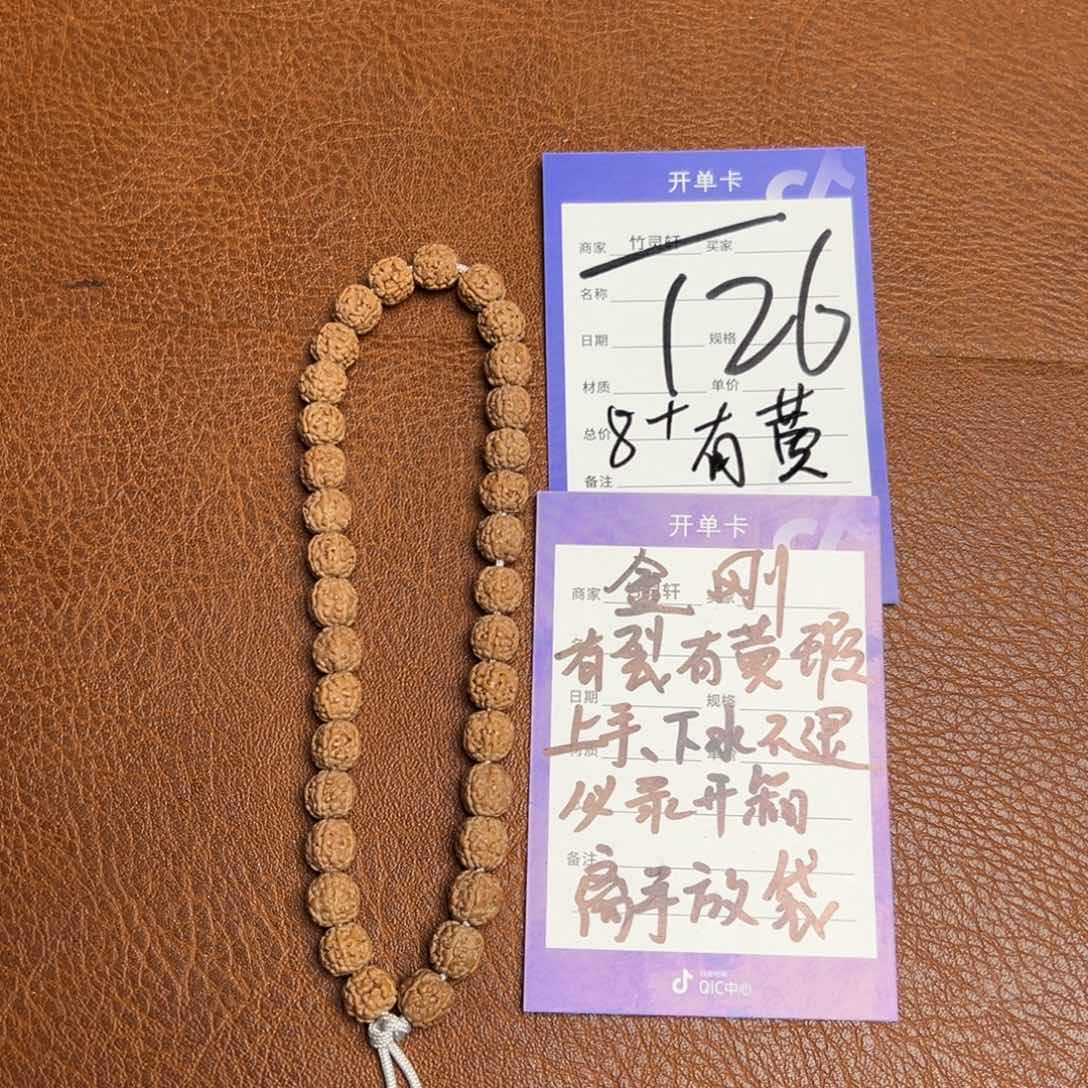 开单卡
商家 竹灵轩 买家
126
名称
日期 规格
材质 单价
总价
8+有黄
备注
开单卡
商家 轩
金刚
有裂有黄瑕
日期 规格
上手、下水不退
必录开箱
备注
离手放袋
QIC中心